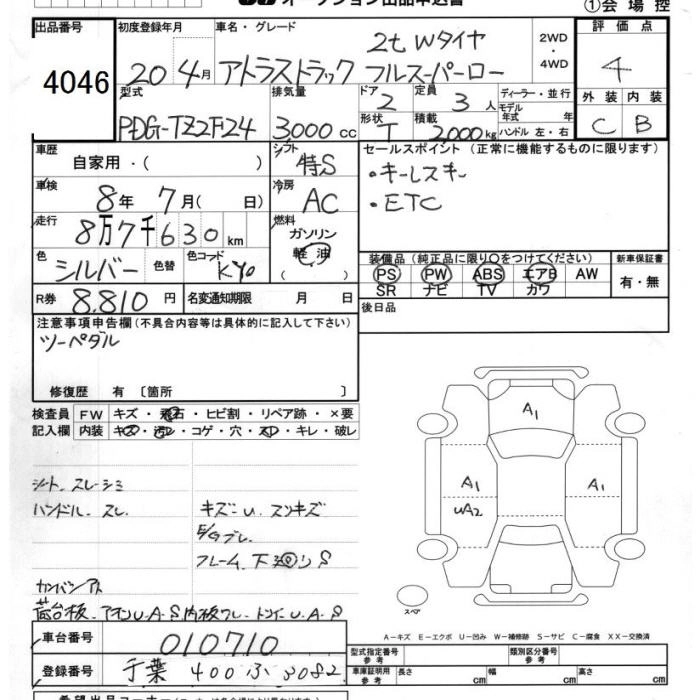 オークション出品申込書
①会場控
出品番号 4046
初度登録年月 20 4月
車名・グレード アトラストラック 2t Wタイヤ フルスーパーロー
2WD・4WD
評価点 4
外装 C 内装 B
型式 PDG-TZ2F24
排気量 3000cc
ドア 2 形状 T
定員 3人 積載 2000kg
ディーラー・並行
モデル年式 年
ハンドル 左・右
車歴 自家用・( )
シフト 特S
車検 8年 7月( 日)
冷房 AC
走行 8万7千630km
燃料 ガソリン 軽油
色 シルバー 色替 色コード KY0
R券 8,810円 名変通知期限 月 日
セールスポイント(正常に機能するものに限ります)
・キーレスキー
・ETC
装備品(純正品に限り○をつけてください)
PS PW ABS エアB AW
SR ナビ TV カワ
新車保証書 有・無
後日品
注意事項申告欄(不具合内容等は具体的に記入して下さい)
ツーペダル
修復歴 有〔箇所 〕
検査員記入欄 FW キズ・飛石・ヒビ割・リペア跡・×要
内装 キズ・汚レ・コゲ・穴・スレ・キレ・破レ
シート、スレ・シミ
ハンドル、スレ
フレーム、下廻りS
A1
A1
UA2
A1
スペア
A-キズ E-エクボ U-凹み W-補修跡 S-サビ C-腐食 XX-交換済
車台番号 010710
登録番号 千葉 400 ふ 3082
型式指定番号 参考
類別区分番号 参考
車庫証明用 参考 長さ cm 幅 cm 高さ cm